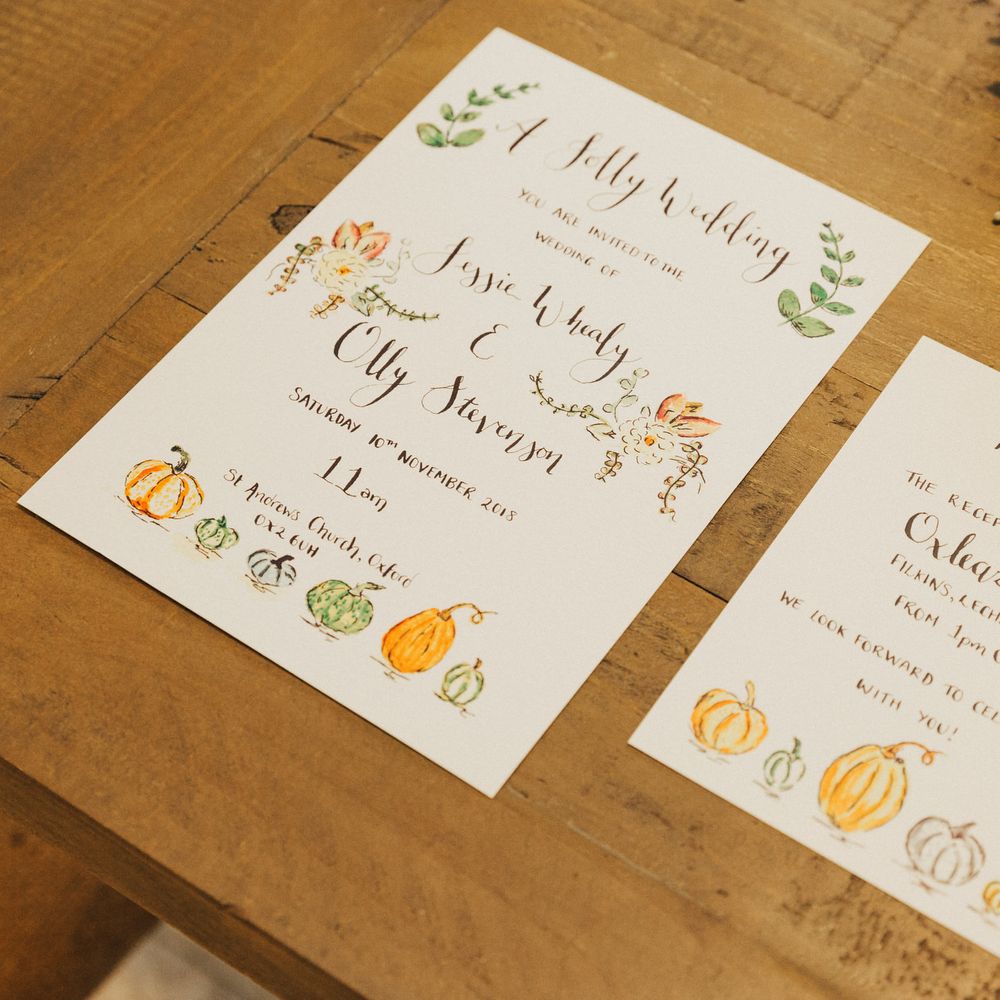 A Jolly Wedding
YOU ARE INVITED TO THE
WEDDING OF
Jessie Whealy
&
Olly Stevenson
SATURDAY 10TH NOVEMBER 2018
11am
St Andrews Church, Oxford
OX2 6UH
THE RECE
FILKINS, LECH
FROM 1pm
WE LOOK FORWARD TO CEL
WITH YOU!